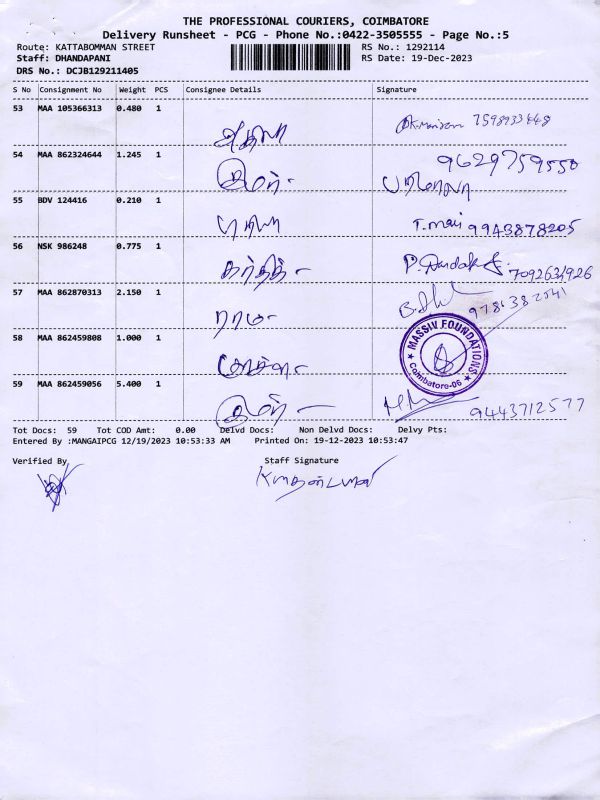 THE PROFESSIONAL COURIERS, COIMBATORE
Delivery Runsheet - PCG - Phone No.:0422-3505555 - Page No.:5
Route: KATTABOMMAN STREET RS No.: 1292114
Staff: DHANDAPANI RS Date: 19-Dec-2023
DRS No.: DCJB129211405
S No Consignment No Weight PCS Consignee Details Signature
53 MAA 105366313 0.480 1
7598933448
54 MAA 862324644 1.245 1
9629759550
55 BDV 124416 0.210 1
T. mani 9943878205
56 NSK 986248 0.775 1
கார்த்திக்
7092634926
57 MAA 862870313 2.150 1
ராம்
9786382541
58 MAA 862459808 1.000 1
MASSIV FOUNDATIONS
Coimbatore-06
59 MAA 862459056 5.400 1
9443712577
Tot Docs: 59 Tot COD Amt: 0.00 Delvd Docs: Non Delvd Docs: Delvy Pts:
Entered By :MANGAIPCG 12/19/2023 10:53:33 AM Printed On: 19-12-2023 10:53:47
Verified By Staff Signature